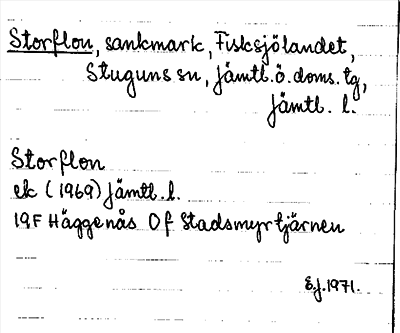 Storflon, sankmark, Fisksjölandet,
Stuguns sn, Jämtl.ö.doms.tg,
Jämtl. l.
Storflon
ek (1969) Jämtl. l.
19F Häggenås Of Stadsmyrtjärnen
EJ.1971.